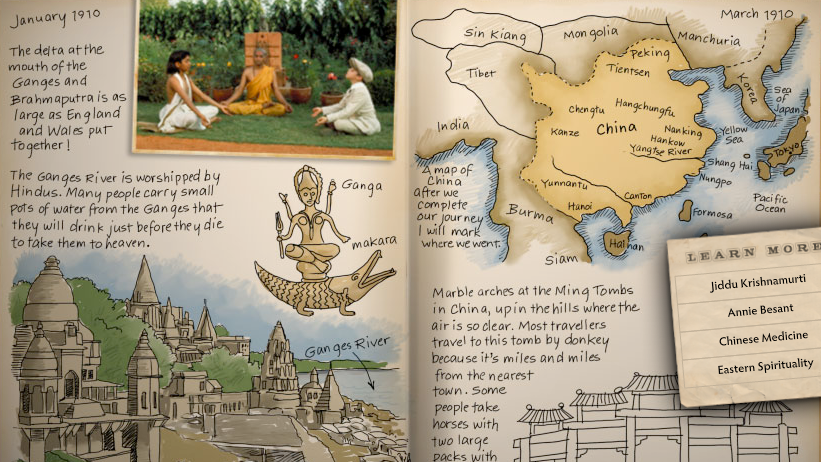 January 1910
The delta at the
mouth of the
Ganges and
Brahmaputra is as
large as England
and Wales put
together!
The Ganges River is worshipped by
Hindus. Many people carry small
pots of water from the Ganges that
they will drink just before they die
to take them to heaven.
Ganga
makara
Ganges River
March 1910
Sin Kiang
Mongolia
Manchuria
Peking
Tientsen
Tibet
Korea
Sea
of
Japan
Chengtu
Hangchungfu
India
Kanze
China
Nanking
Hankow
Yangtse River
Yellow
Sea
Tokyo
Shang Hai
Ningpo
A map of
China
after we
complete
our journey
I will mark
where we went.
Yunnantu
Canton
Hanoi
Burma
Formosa
Pacific
Ocean
Hainan
Siam
Marble arches at the Ming Tombs
in China, up in the hills where the
air is so clear. Most travellers
travel to this tomb by donkey
because it's miles and miles
from the nearest
town. Some
people take
horses with
two large
packs with
LEARN MORE
Jiddu Krishnamurti
Annie Besant
Chinese Medicine
Eastern Spirituality